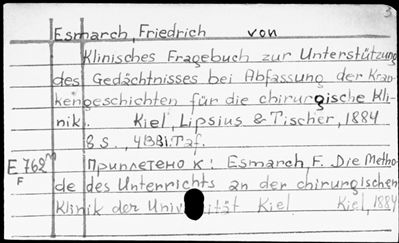 Esmarch, Friedrich von
Klinisches Fragebuch zur Unterstützung
des Gedächtnisses bei Abfassung der Kran-
kengeschichten für die chirurgische Kli-
nik. Kiel, Lipsius & Tischer, 1884
8 S., 4 Bl. Taf.
E 762 m Приплетено к: Esmarch, F. Die Metho-
F
de des Unterrichts an der chirurgischen
Klinik der Univ sität Kiel Kiel, 1884